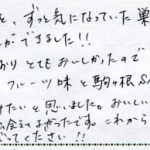 も、ずっと気になっていた巣
ができました!!
おりとてもおいしかったので
フルーツ味と駒ヶ根SA
たいと思いました。おいしい
会えてよかったです。これから
ってください!!